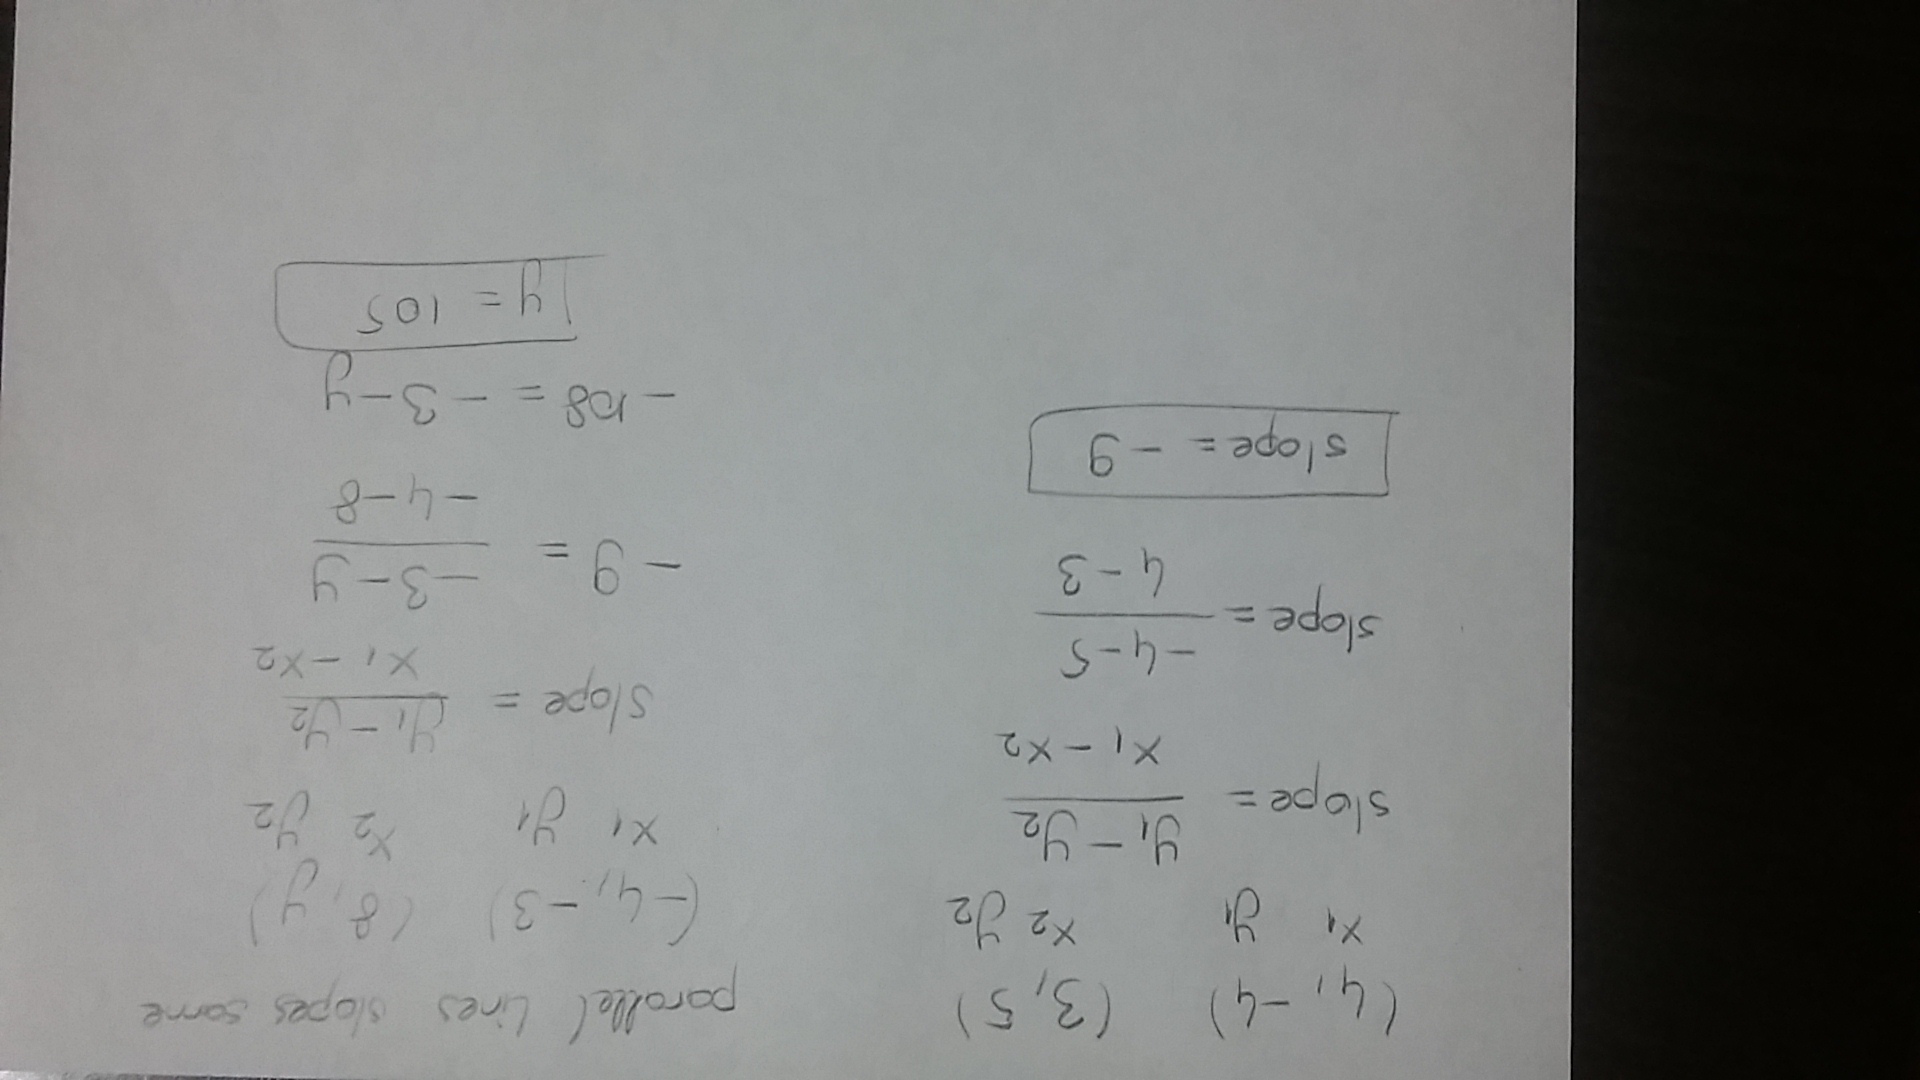 (4, -4) (3, 5)
x1 y1 x2 y2
slope = y1 - y2
x1 - x2
slope = -4-5
4-3
slope = -9
parallel lines slopes same
(-4, -3) (8, y)
x1 y1 x2 y2
slope = y1 - y2
x1 - x2
-9 = -3-y
-4-8
-108 = -3-y
y = 105